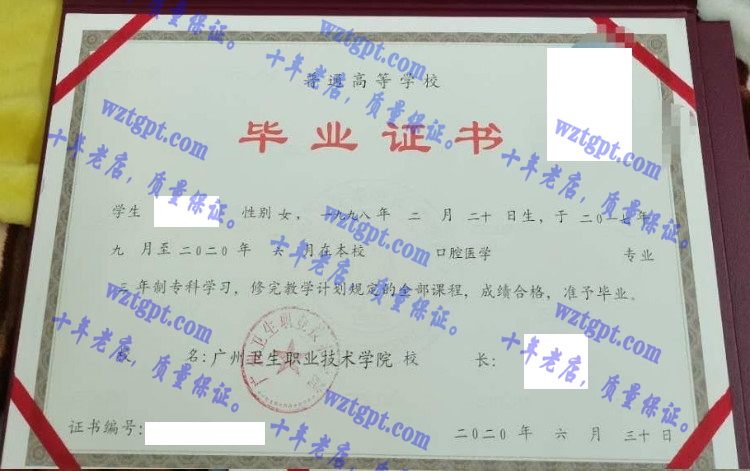 普通高等学校
毕业证书
学生 性别 女, 一九九八年 二 月 二十 日生, 于 二〇一七年
九 月至 二〇二〇 年 六 月在本校 口腔医学 专业
三 年制专科学习, 修完教学计划规定的全部课程, 成绩合格, 准予毕业。
校 名: 广州卫生职业技术学院 校 长:
证书编号: 二〇二〇 年 六 月 三十 日
十年老店, 质量保证。
wztgpt.com
十年老店, 质量保证。
wztgpt.com
十年老店, 质量保证。
wztgpt.com
十年老店, 质量保证。
wztgpt.com
十年老店, 质量保证。
wztgpt.com
十年老店, 质量保证。
wztgpt.com
十年老店, 质量保证。
wztgpt.com
十年老店, 质量保证。
wztgpt.com
十年老店, 质量保证。